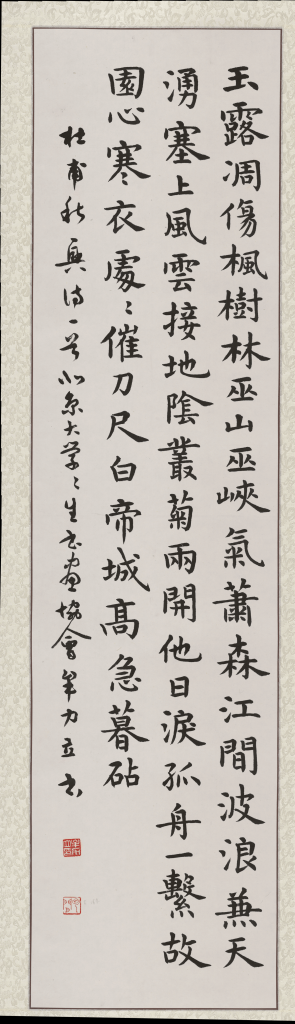 玉露凋傷楓樹林巫山巫峽氣蕭森江間波浪兼天
湧塞上風雲接地陰叢菊兩開他日淚孤舟一繫故
園心寒衣處〻催刀尺白帝城高急暮砧
杜甫秋興诗一首北京大学〻生书画協會年力立书